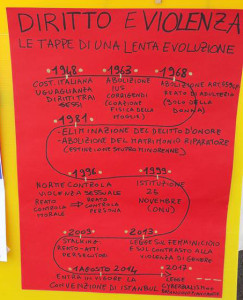 DIRITTO E VIOLENZA
LE TAPPE DI UNA LENTA EVOLUZIONE
1948
1963
1968
COST. ITALIANA
UGUAGLIANZA
DIRITTI TRA I
SESSI
ABOLIZIONE
IUS
CORRIGENDI
(COAZIONE
FISICA DELLA
MOGLIE)
ABOLIZIONE ART. 559
REATO DI ADULTERIO
(SOLO DELLA
DONNA)
1981
- ELIMINAZIONE DEL DELITTO D'ONORE
- ABOLIZIONE DEL MATRIMONIO RIPARATORE
1996
1999
NORME CONTRO LA
VIOLENZA SESSUALE
REATO CONTRO LA MORALE
REATO CONTRO LA PERSONA
ISTITUZIONE
25
NOVEMBRE
(ONU)
2009
2013
STALKING
REATO
LEGGE SUL FEMMINICIDIO
E SUL CONTRASTO ALLA
VIOLENZA DI GENERE
1 AGOSTO 2014
2017
ENTRA IN VIGORE LA
CONVENZIONE DI ISTANBUL
CYBERBULLISMO